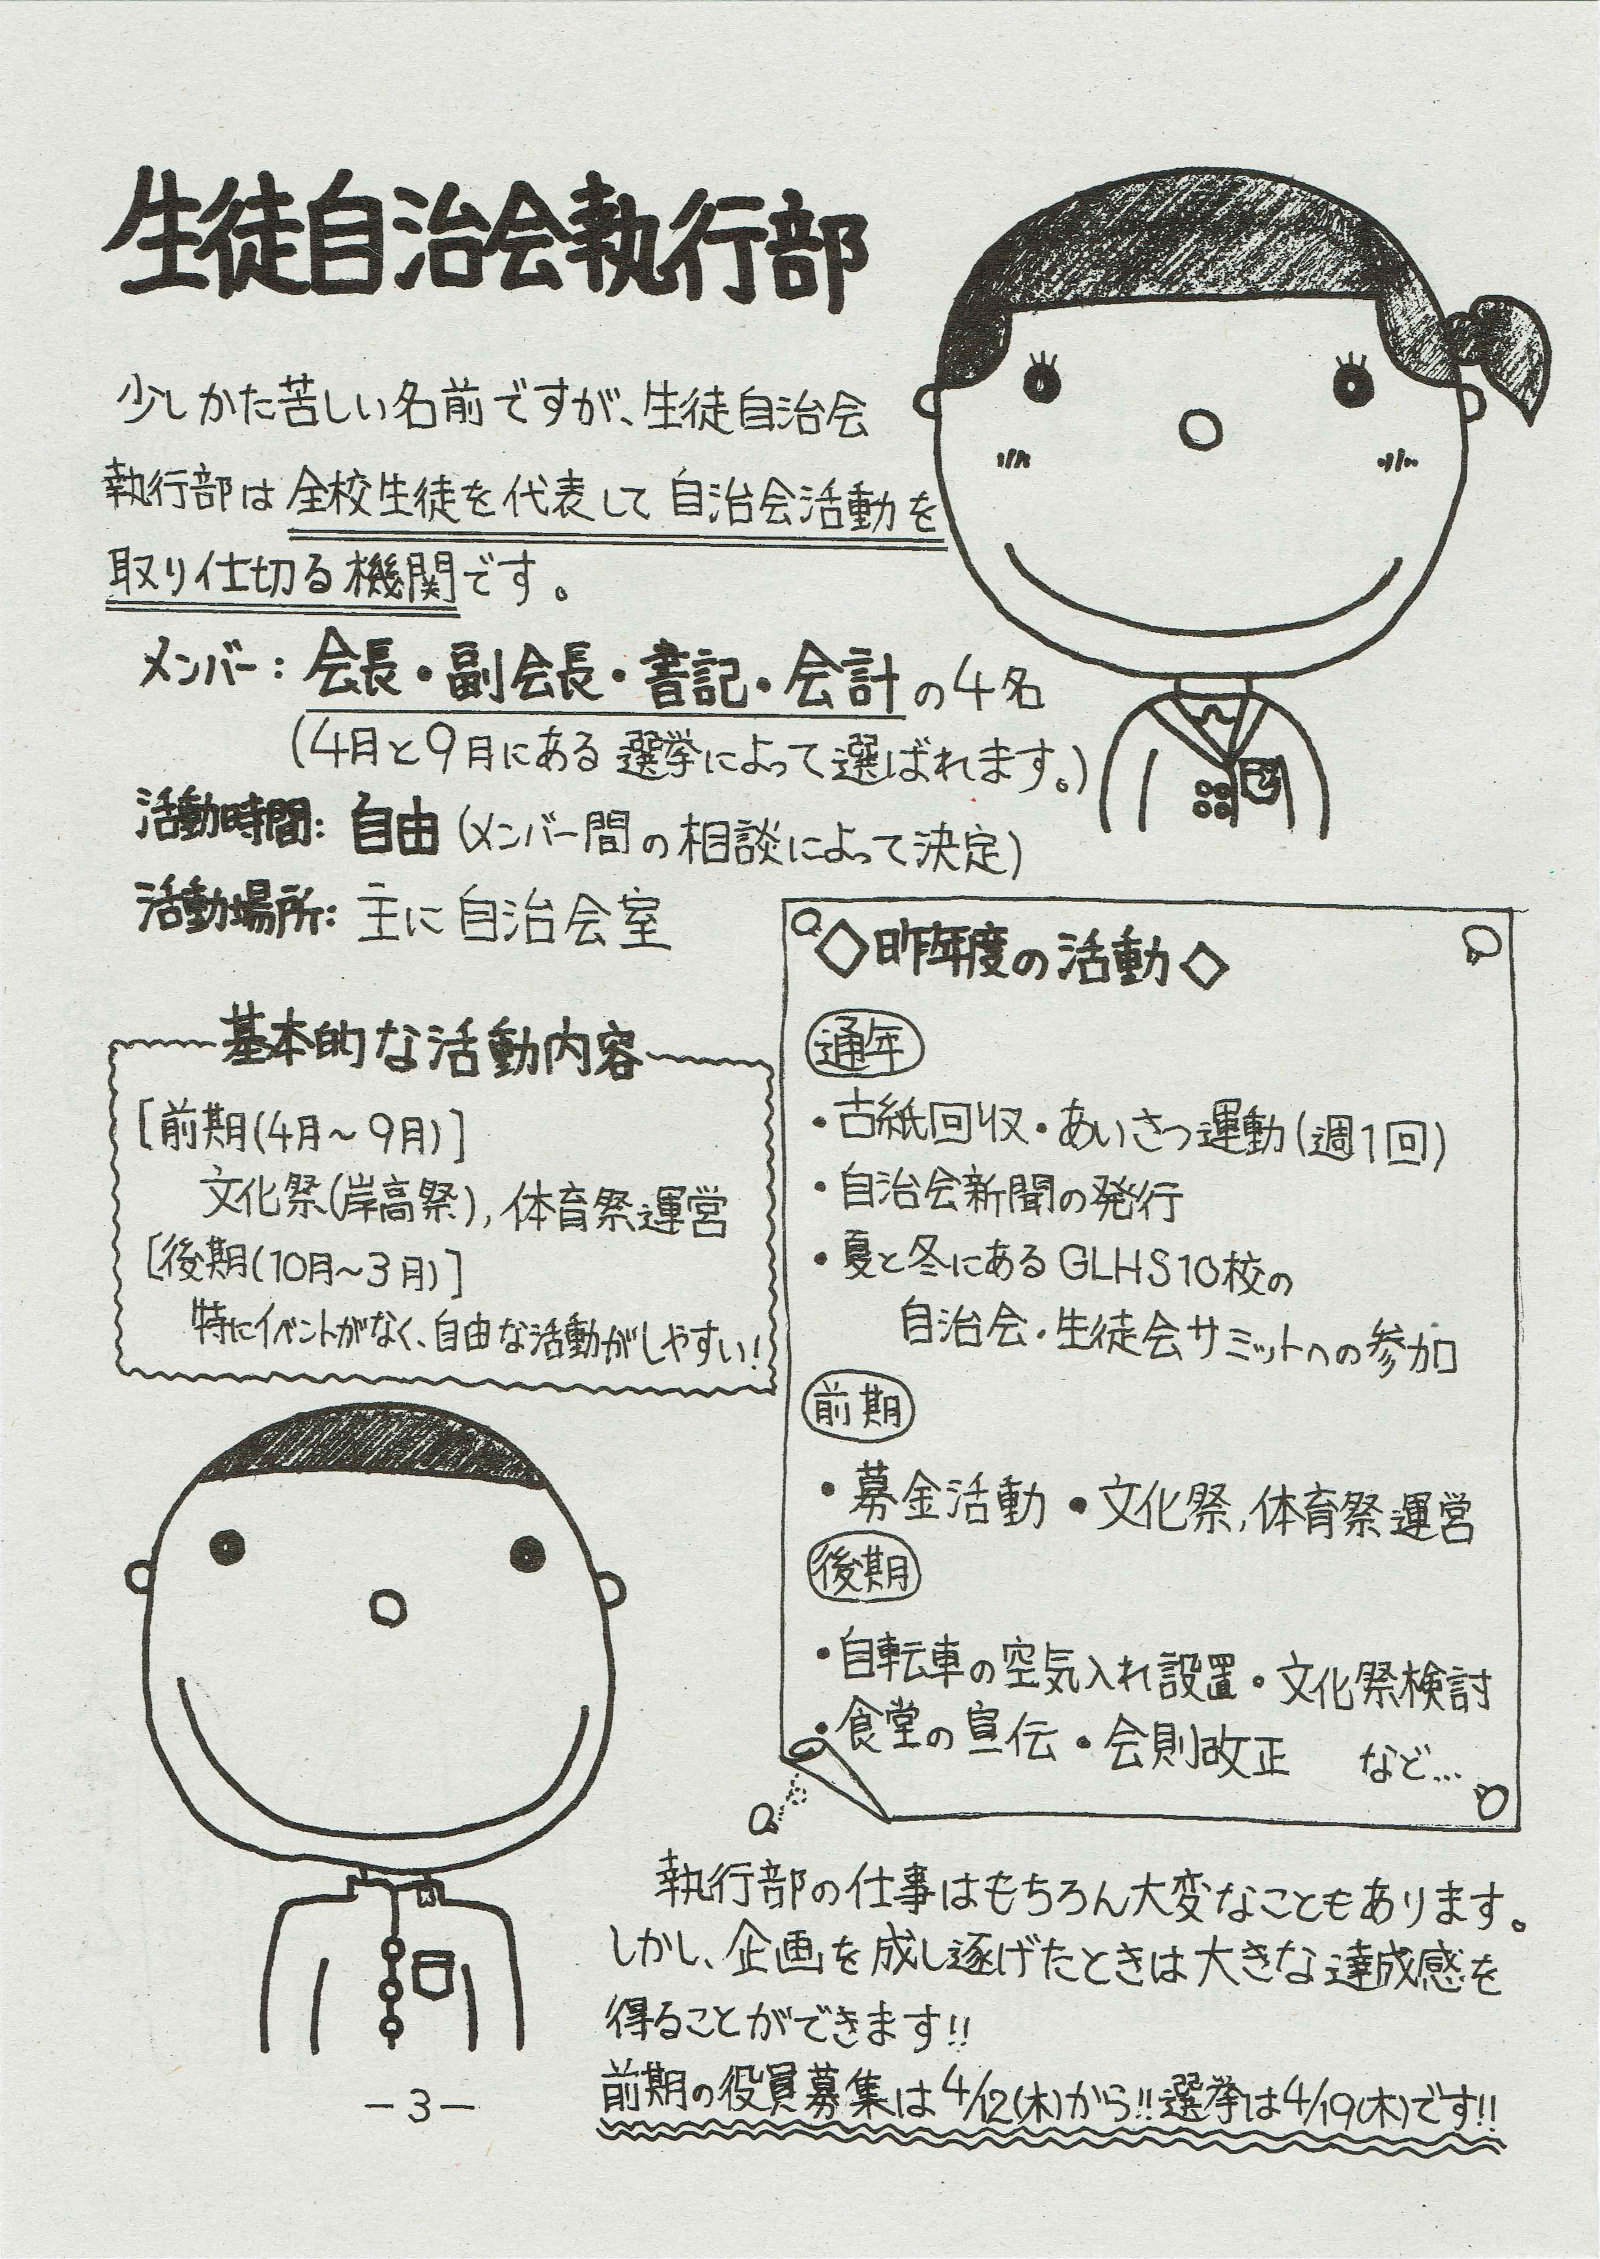 生徒自治会執行部
少しかた苦しい名前ですが、生徒自治会
執行部は全校生徒を代表して自治会活動を
取り仕切る機関です。
メンバー：会長・副会長・書記・会計の4名
(4月と9月にある選挙によって選ばれます。)
活動時間：自由(メンバー間の相談によって決定)
活動場所：主に自治会室
基本的な活動内容
[前期(4月～9月)]
文化祭(岸高祭),体育祭運営
[後期(10月～3月)]
特にイベントがなく、自由な活動がしやすい!
◇昨年度の活動◇
通年
・古紙回収・あいさつ運動(週1回)
・自治会新聞の発行
・夏と冬にあるGLHS10校の
自治会・生徒会サミットへの参加
前期
・募金活動 ・文化祭,体育祭運営
後期
・自転車の空気入れ設置・文化祭検討
・食堂の宣伝・会則改正 など…
執行部の仕事はもちろん大変なこともあります。
しかし、企画を成し遂げたときは大きな達成感を
得ることができます!!
前期の役員募集は4/12(木)から!!選挙は4/19(木)です!!
－3－